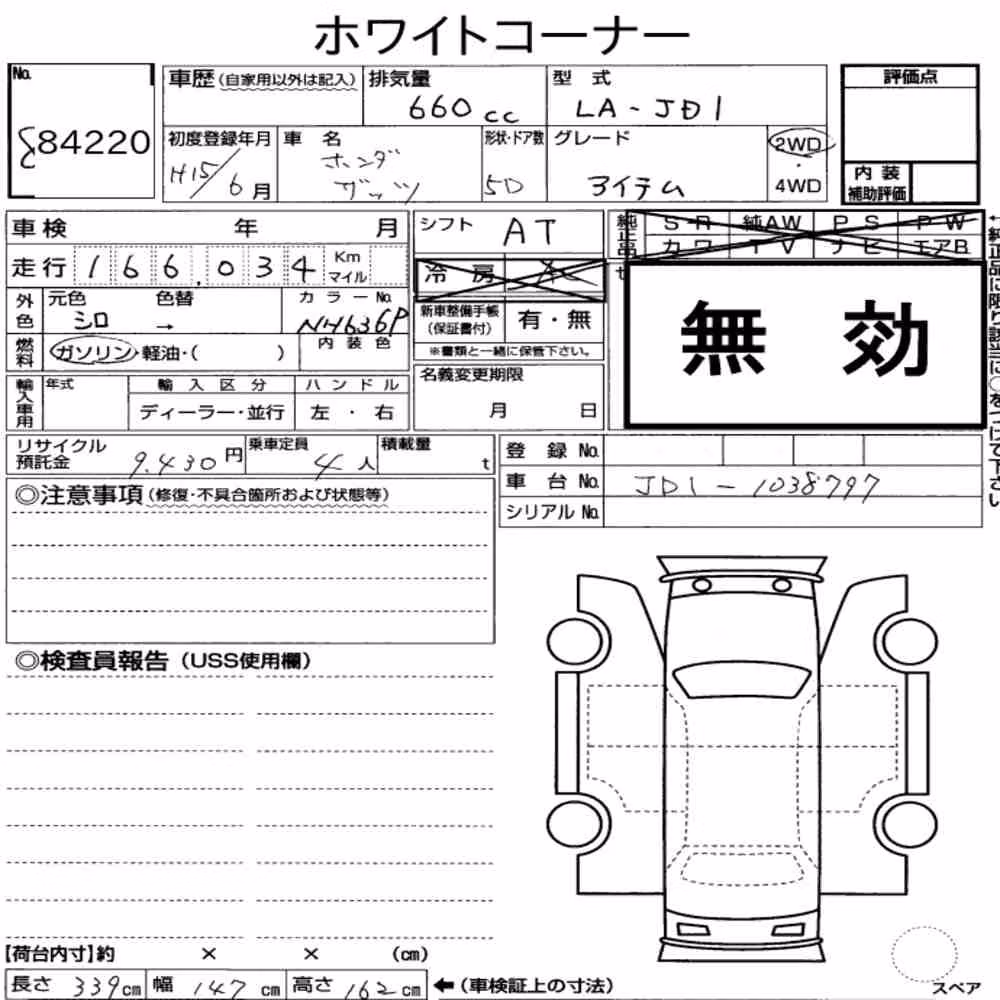 ホワイトコーナー
No.
84220
車歴(自家用以外は記入)
排気量
660 cc
型 式
LA-JD1
評価点
初度登録年月
H15/6月
車 名
ホンダ
ザッツ
形状・ドア数
5D
グレード
アイテム
2WD
・
4WD
内 装
補助評価
車検 年 月
シフト
AT
純正品
S-R 純AW P S P W
カワ T V ナビ エアB
走行 166,034 Km マイル
冷 房
外色
元色 色替
シロ →
カラーNo.
NH636P
内装色
新車整備手帳
(保証書付)
有・無
※書類と一緒に保管下さい。
燃料
ガソリン・軽油・( )
無 効
輸入車用
年式
輸入区分
ディーラー・並行
ハンドル
左 ・ 右
名義変更期限
月 日
リサイクル
預託金
9.430円
乗車定員
4人
積載量
t
登 録 No.
車 台 No. JD1-1038797
シリアル No.
◎注意事項(修復・不具合箇所および状態等)
◎検査員報告(USS使用欄)
【荷台内寸】約 × × (cm)
長さ 339cm 幅 147cm 高さ 162cm ←(車検証上の寸法)
スペア